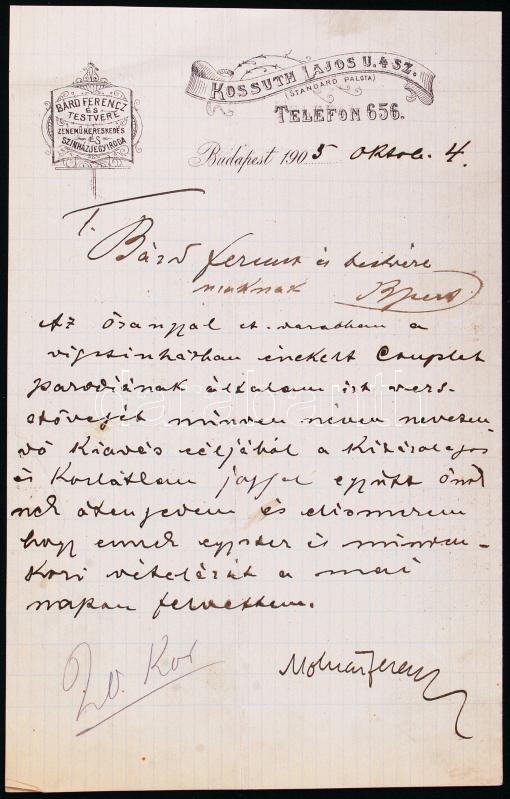 BÁRD FERENCZ
ÉS
TESTVÉRE
ZENEMŰKERESKEDÉS
ÉS
SZINHÁZJEGYIRODA
KOSSUTH LAJOS U. 4 SZ.
(STANDARD PALOTA)
TELEFON 656.
Budapest 1905 Oktob. 4.
T.
Bárd Ferencz és testvére
uraknak Bpest
Az őrangyal cz. darabban a
vigszinházban énekelt Couplet
parodiának általam írt vers-
szövegét minden néven nevezen
dő Kiadás céljából a Kizárolagos
és Korlátlan joggal együtt önök
nek átengedem és elismerem
hogy ennek egyszer és minden-
Kori vételárát a mai
napon felvettem.
Molnár Ferencz